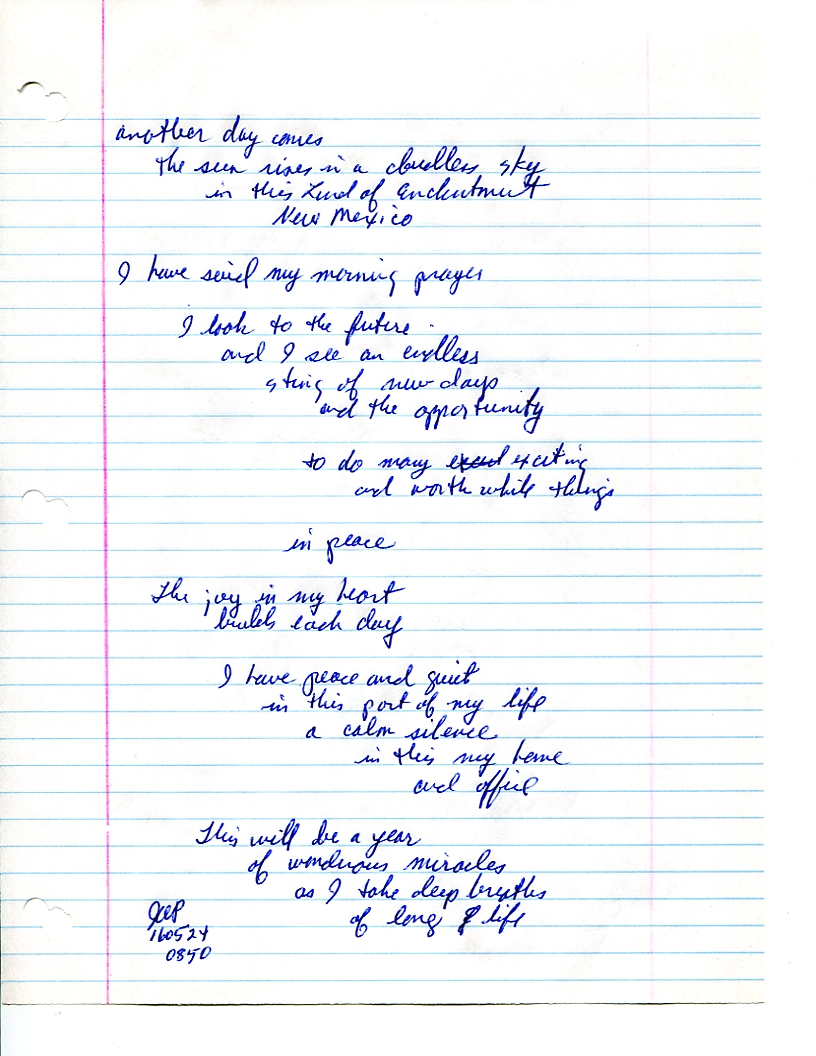 another day comes
the sun rises in a cloudless sky
in this Land of Enchantment
New Mexico
I have said my morning prayer
I look to the future
and I see an endless
sting of new days
and the opportunity
to do many exciting
and worth while things
in peace
The joy in my heart
builds each day
I have peace and quiet
in this part of my life
a calm silence
in this my home
and office
This will be a year
of wondrous miracles
as I take deep breaths
of long life
160524
0850